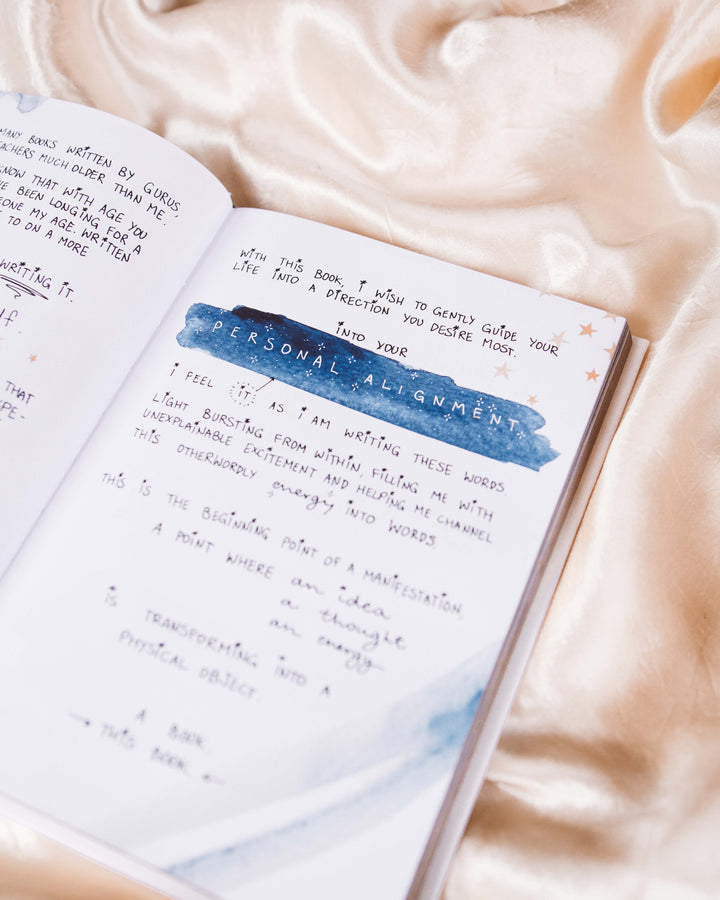 MANY BOOKS WRITTEN BY GURUS,
TEACHERS MUCH OLDER THAN ME.
KNOW THAT WITH AGE YOU
BEEN LONGING FOR A
MY AGE. WRITTEN
TO ON A MORE
WRITING IT.
THAT
WITH THIS BOOK, I WISH TO GENTLY GUIDE YOUR
LIFE INTO A DIRECTION YOU DESIRE MOST.
INTO YOUR
PERSONAL ALIGNMENT
I FEEL IT AS I AM WRITING THESE WORDS.
LIGHT BURSTING FROM WITHIN, FILLING ME WITH
UNEXPLAINABLE EXCITEMENT AND HELPING ME CHANNEL
THIS OTHERWORDLY energy INTO WORDS.
THIS IS THE BEGINNING POINT OF A MANIFESTATION.
A POINT WHERE an idea
a thought
an energy
IS TRANSFORMING INTO A
PHYSICAL OBJECT.
A BOOK.
→ THIS BOOK ←